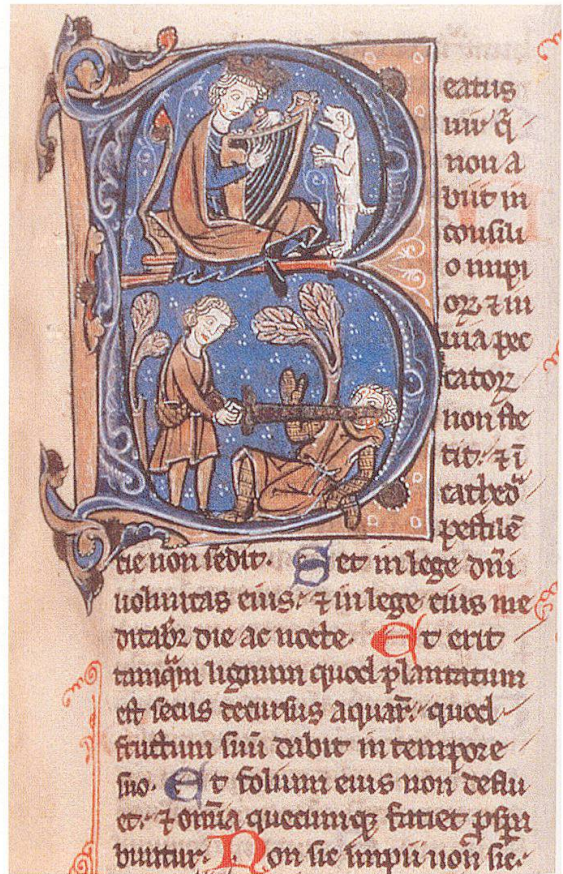 Beatus
uir q̄
non a
biit in
consili
o impi
oꝝ ⁊ in
uia pec
catoꝝ
non ste
tit. ⁊ ī
cathed̾
pestilē
tie non sedit. Set in lege dn̄i
uoluntas eius. ⁊ in lege eius me
ditabr̄ die ac nocte. Et erit
tamq̄m lignum quod plantatum
est secus decursus aquar̄. quod
fructum suū dabit in tempore
suo. Et folium eius non deflu
et. ⁊ om̄ia quecumqꝫ faciet pspa
buntur. Non sic impii non sic.